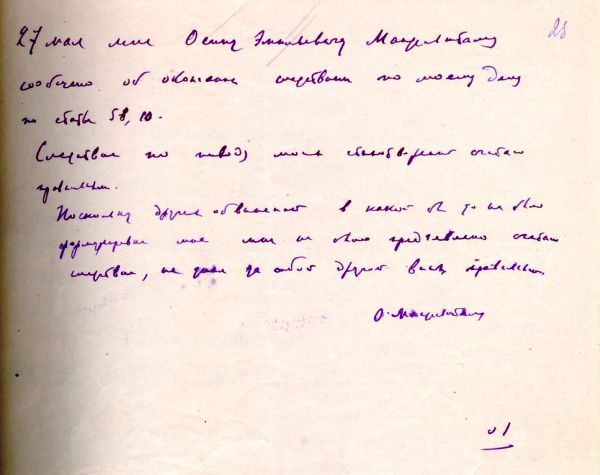 28
27 мая мне Осипу Эмильевичу Мандельштаму
сообщено об окончании следствия по моему делу
по статье 58, 10.
Следствие по поводу моих стихотворений считаю
правильным.
Поскольку других обвинений в какой бы то ни было
формулировке мне не было предъявлено считаю
следствие, не зная за собой другой вины правильным
О. Мандельштам